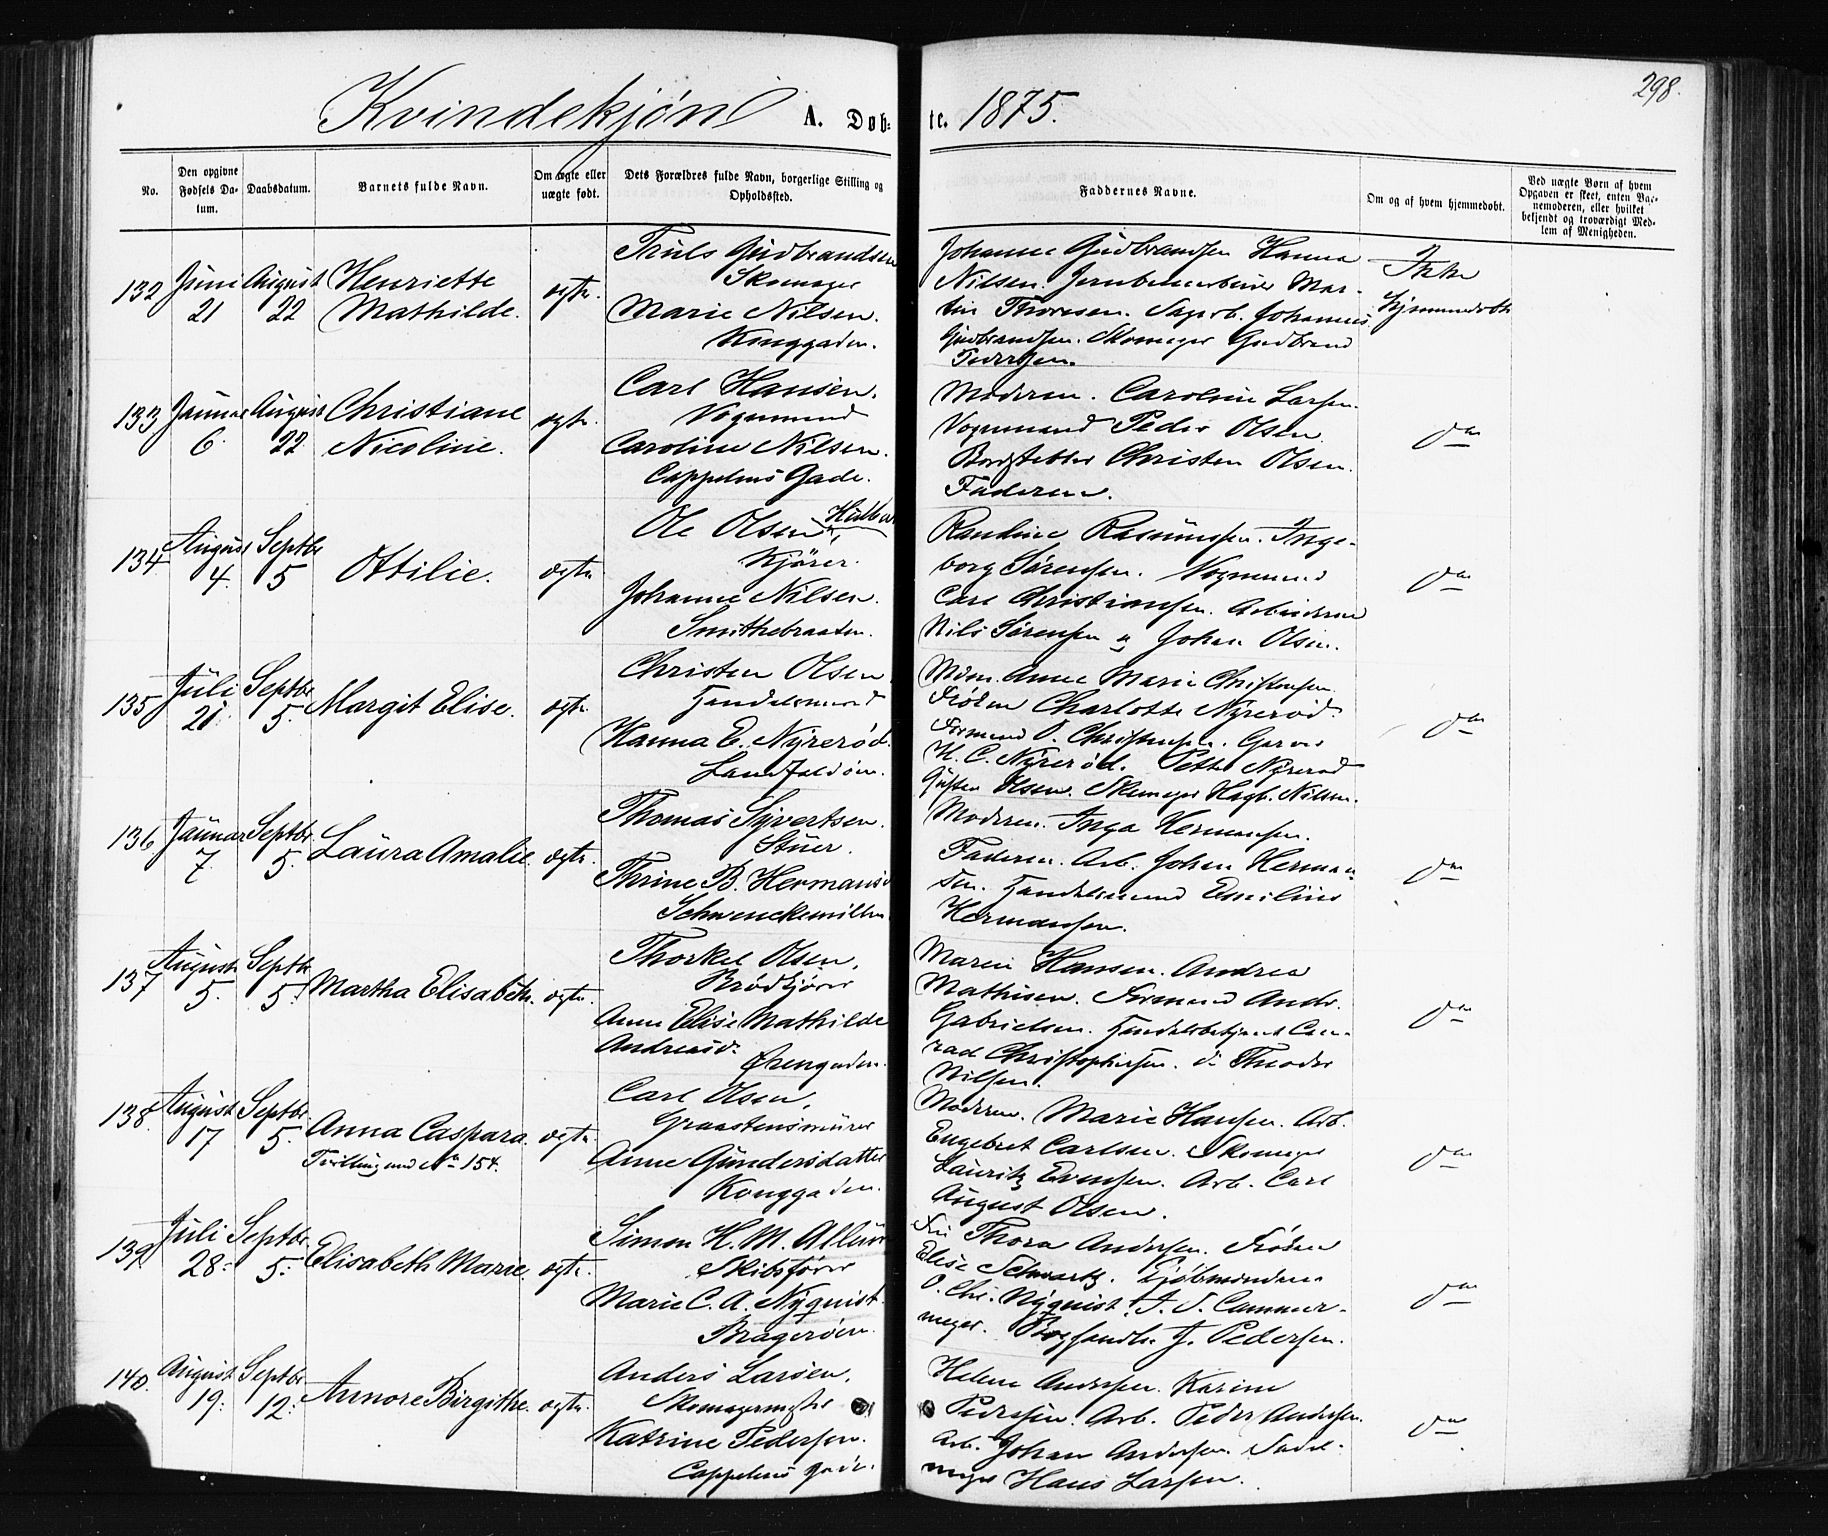 298.
Kvindekjøn A. Døb- te. 1875.
No.
Den opgivne Fødsels Da- tum.
Daabsdatum.
Barnets fulde Navn.
Om ægte eller uægte født.
Dets Forældres fulde Navn, borgerlige Stilling og Opholdssted.
Faddernes Navne.
Om og af hvem hjemmedøbt.
Ved uægte Børn af hvem Opgaven er skeet, enten Bar- nemoderen, eller hvilket bekjendt og troværdigt Med- lem af Menigheden.
132 Juni 21 August 22 Henriette Mathilde. ægte.
Truls Gudbrandsen
Skomager
Marie Nilsen.
Konggaden.
Johanne Gudbrandsen Hanna
Nilsen. Jernbanearbeider Mar-
tin Thoresen. Sagarb. Johannes
Gudbrandsen. Skomager Gudbrand
Pedersen.
Ikke
hjemmedøbt
133 Januar 6. August 22 Christiane Nicoline. ægte.
Carl Hansen.
Vognmand
Caroline Nilsen.
Cappelens Gade.
Moderen. Caroline Larsen.
Vognmand Peder Olsen.
Christen Olsen.
Faderen.
do
134 August 4. Septbr 5 Ottilie. ægte
Ole Olsen,
Kjører.
Johanne Nilsen.
Smithebraaten.
Rasmussen. Inge-
borg Sørensen. Vognmand
Carl Christiansen. Arbeiderne
Nils Sørensen og Johan Olsen.
do
135 Juli 21. Septbr. 5. Margit Elise. ægte.
Christen Olsen
Handelsmand
Hanna E. Nyrerød.
Landfaldøen.
Mdm. Anne Marie Christensen
Frøken Charlotte Nyrerød.
Formand O. Christensen. Garver
H. C. Nyrerød. Petter Nyrerød
Olsen. Skomager Hagb. Nilsen.
do
136 Januar 7. Septbr. 5. Laura Amalie. ægte.
Thomas Syvertsen.
Stuer.
Thrine B. Hermansd
Schwenckemillen
Moderen. Inga Hermansen.
Faderen. Arb. Johan Herman-
sen. Handelsmand Emilius
Hermansen.
do
137 August 5. Septbr 5. Martha Elisabeth. ægte.
Thorkel Olsen,
Brødkjører
Anne Elise Mathilde
Andreasd.
Øvengaden.
Maren Hansen. Andrea
Mathisen. Formand Andr.
Gabrielsen. Handelsbetjent Con-
rad Christophersen. do Theodor
Nilsen.
do
138. August 17 Septbr. 5. Anna Caspara. ægte.
Tvilling med No 154.
Carl Olsen,
Graastensmurer
Anne Gundersdatter
Konggaden.
Moderen. Marie Hansen. Arb.
Engebret Carlsen. Skomager
Lauritz Evensen. Arb. Carl
August Olsen.
do
139 Juli 28. Septbr. 5. Elisabeth Marie. ægte.
Simon H. M.
Skibsfører
Marie C. A. Nyquist.
Bragerøen.
Fru Thora Andersen. Frøken
Elise Schwartz. Kjøbmændene
O. Chr. Nyquist. J. S. Cammer-
meyer. Boghandler J. Pedersen.
do
140. August 19. Septbr 12. Annore Birgithe. ægte.
Anders Larsen,
Skomagermester
Katrine Pedersen.
Cappelens Gade.
Helene Andersen. Karine
Pedersen. Arb. Peder Andersen.
Arb. Johan Andersen. Sadel-
mager Hans Larsen.
do